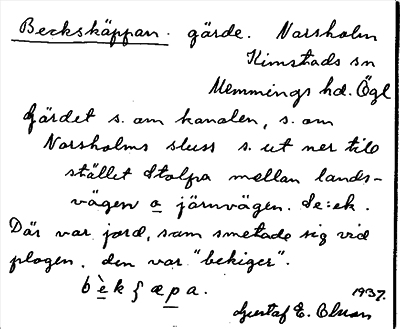 Beckskäppan. gärde. Norsholm
Kimstads sn
Memmings hd. Ögl
Gärdet s. om kanalen, s. om
Norsholms sluss s. ut ner till
stället Stolpa mellan lands-
vägen o järnvägen. Se: ek.
Där var jord, som smetade sig vid
plogen. den var "bekiger".
bèkʃæpa.
1937.
Gustaf E. Olsson